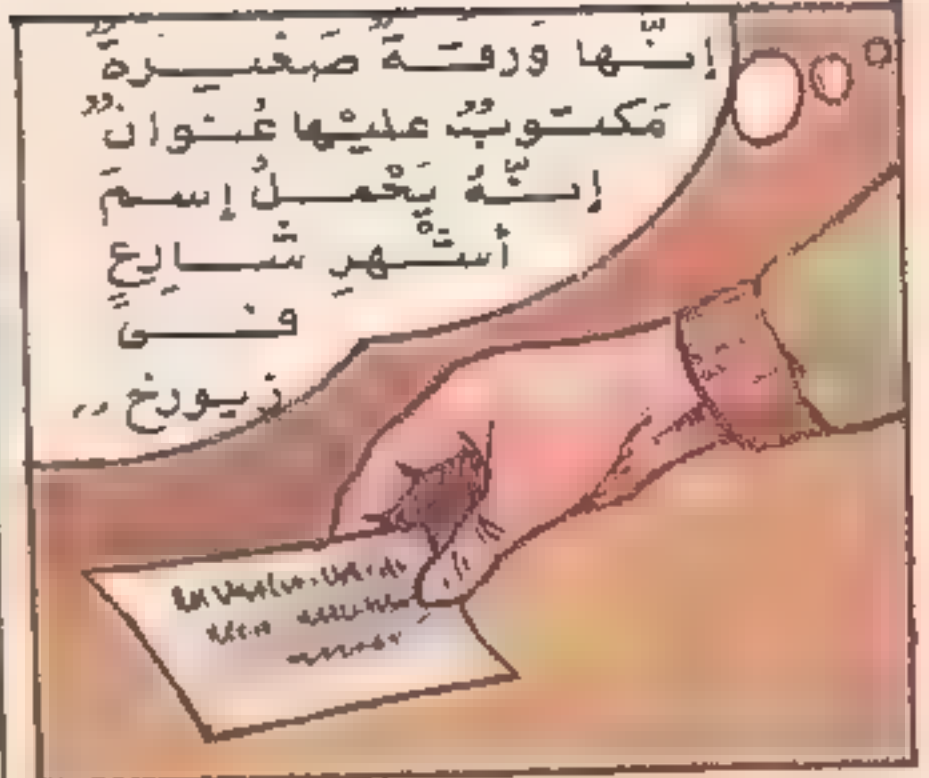 إنّها وَرقَةٌ صَغيرَةٌ
مَكتوبٌ عليْها عُنوانٌ..
إنّهُ يَحْملُ إسمَ
أشْهرِ شَارِعٍ
فى
زيورخ ,,